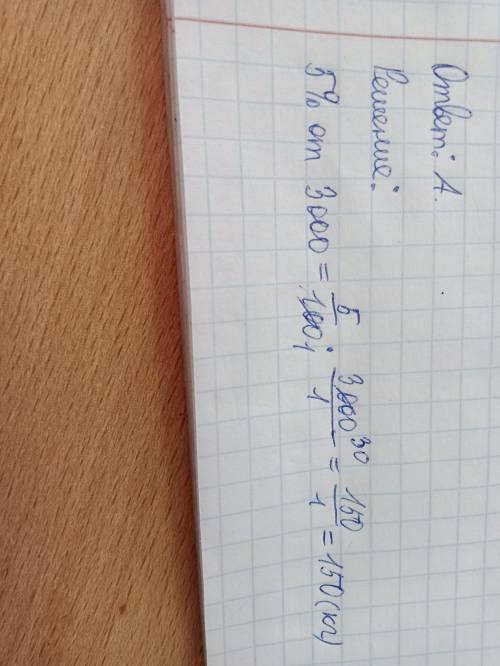 Ответ: А.
Решение:
5% от 3000 = 5/100 1 · 3000 30/1 = 150/1 = 150 (кг)